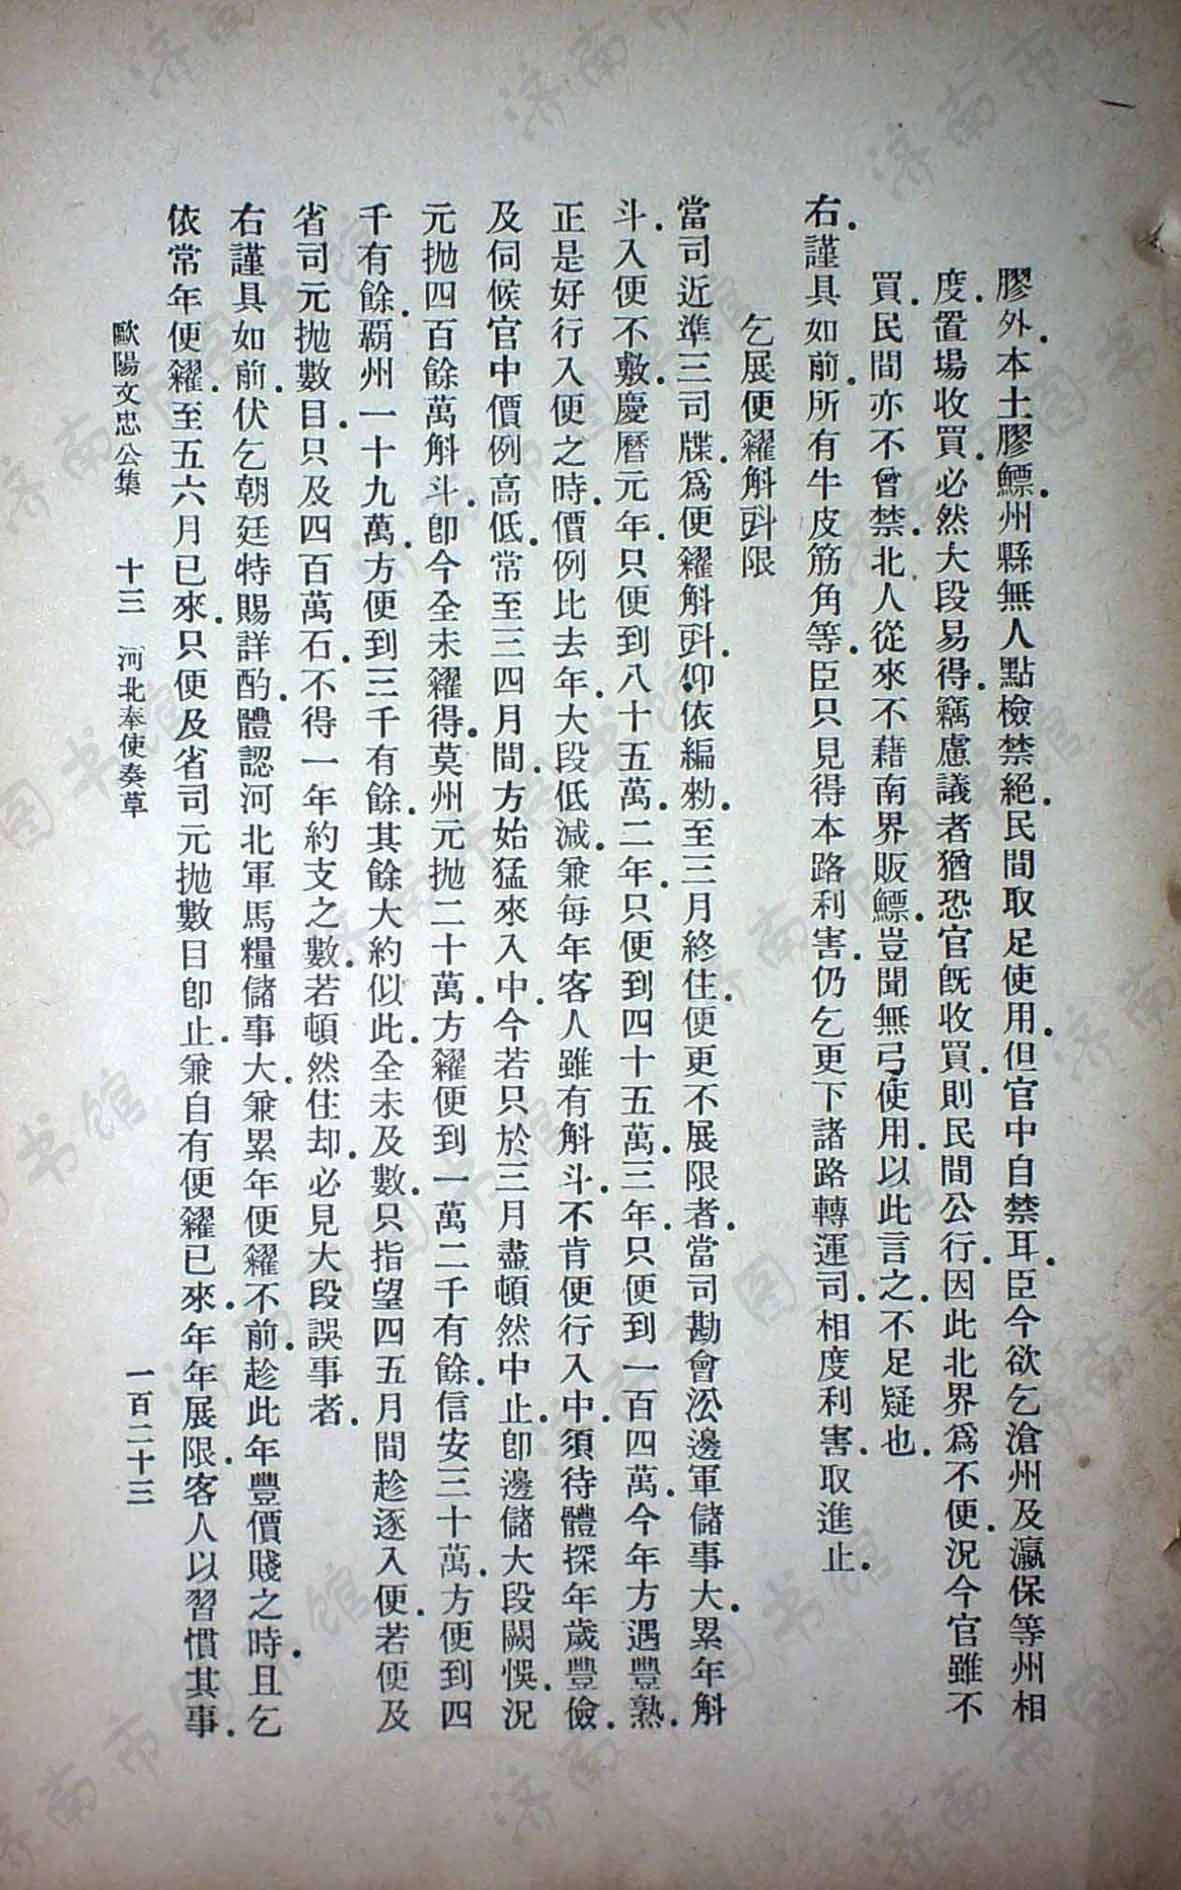 膠外.本土膠鰾.州縣無人點檢禁絕.民間取足使用.但官中自禁耳.臣今欲乞滄州及瀛保等州相
度.置場收買.必然大段易得.竊慮議者猶恐官既收買.則民間公行.因此北界爲不便.況今官雖不
買.民間亦不曾禁.北人從來不藉南界販鰾.豈聞無弓使用.以此言之.不足疑也.
右.謹具如前.所有牛皮筋角等.臣只見得本路利害.仍乞更下諸路轉運司.相度利害.取進止.
乞展便糴斛㪷限
當司近準三司牒.爲便糴斛㪷.仰依編勑.至三月終住便.更不展限者.當司勘會㳂邊軍儲事大.累年斛
斗.入便不敷.慶曆元年.只便到八十五萬.二年.只便到四十五萬.三年.只便到一百四萬.今年方遇豐熟.
正是好行入便之時.價例比去年.大段低減.兼每年客人雖有斛斗.不肯便行入中.須待體探年歲豐儉.
及伺候官中價例高低.常至三四月間.方始猛來入中.今若只於三月盡頓然中止.卽邊儲大段闕悞.況
元拋四百餘萬斛斗.卽今全未糴得.莫州元拋二十萬.方糴便到一萬二千有餘.信安三十萬.方便到四
千有餘.霸州一十九萬.方便到三千有餘.其餘大約似此.全未及數.只指望四五月間趁逐入便.若便及
省司元拋數目.只及四百萬石.不得一年約支之數.若頓然住却.必見大段誤事者.
右謹具如前.伏乞朝廷特賜詳酌.體認河北軍馬糧儲事大.兼累年便糴不前.趁此年豐價賤之時.且乞
依常年便糴.至五六月已來.只便及省司元拋數目卽止.兼自有便糴已來.年年展限.客人以習慣其事.
歐陽文忠公集 十三 河北奉使奏草 一百二十三
济南市图书馆